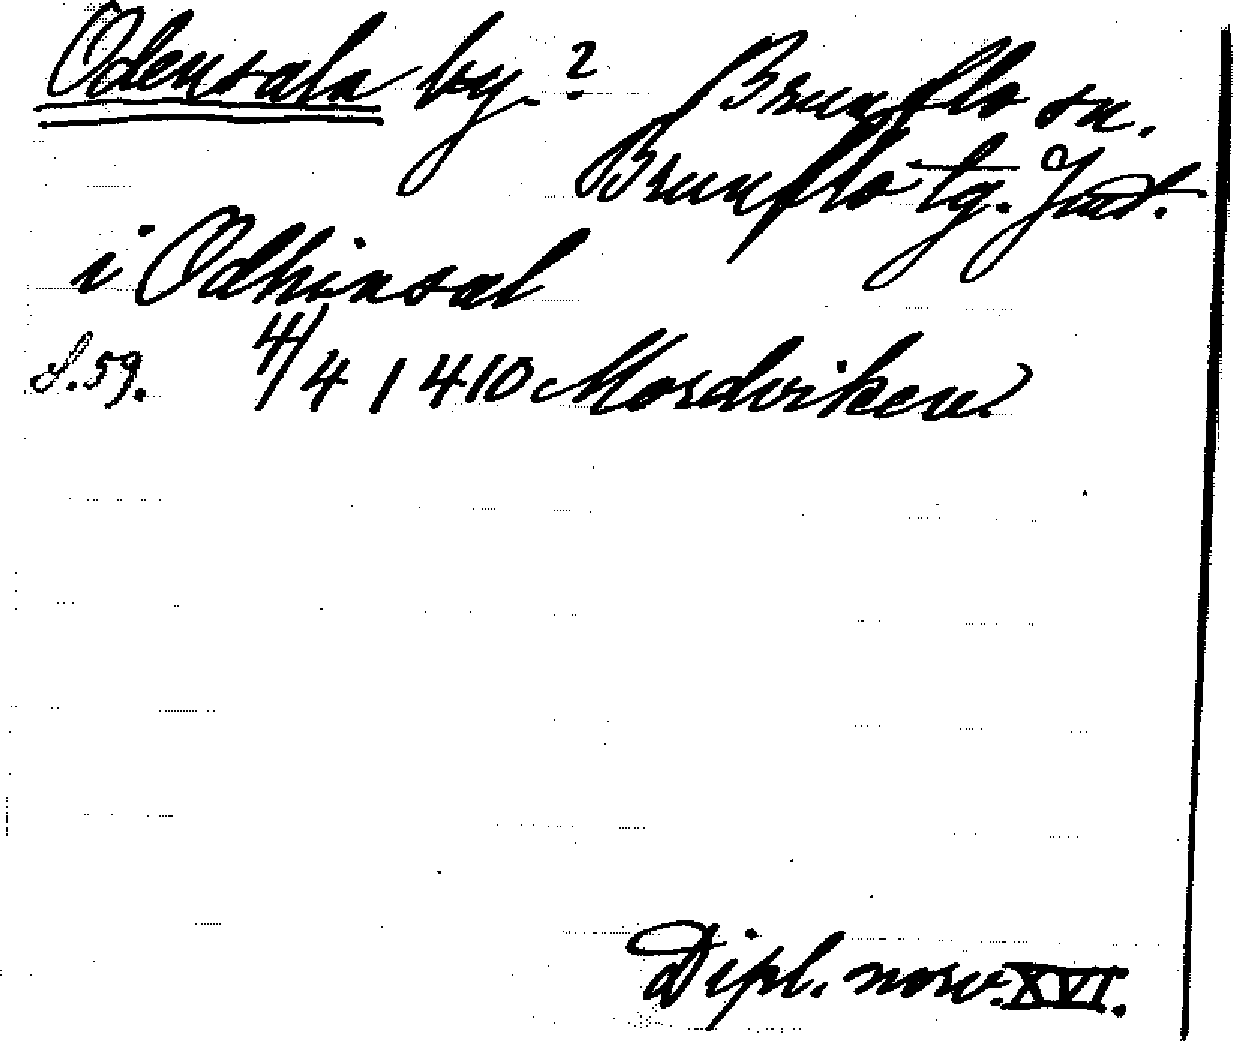 Odensala by. ? Brunflo sn.
Brunflo tg. Jmt.
i Odhinsal
S. 59. 4/4 1410 Mordviken.
Dipl. norv. XVI.